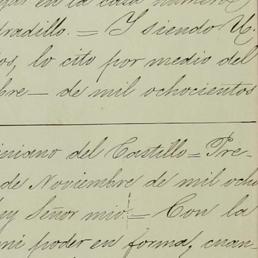 en la casa número
tradillo. = Y siendo U.
os, lo cito por medio del
bre — de mil ochocientos
iniano del Castillo = Pre-
de Noviembre de mil ocho
uy Señor mio = Con la
mi poder en forma, cuan-